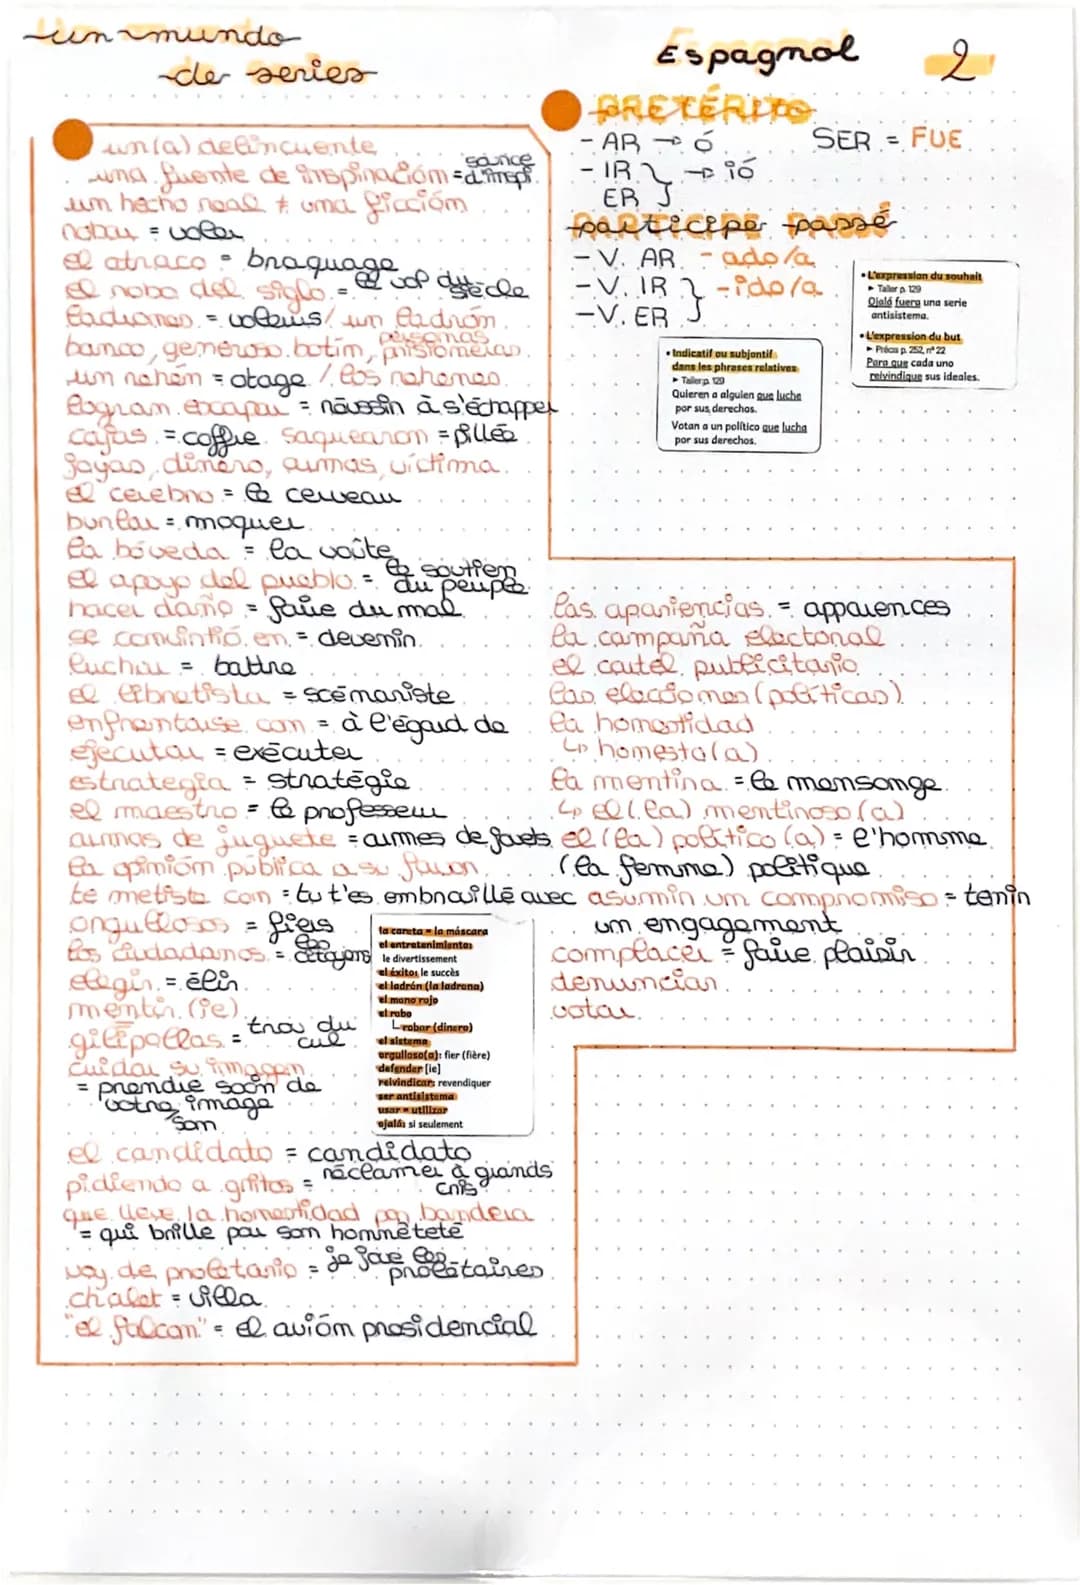 un mundo
de series
Espagnol 2
un(a) delincuente
una fuente de inspiración = source d'inspi.
un hecho real ≠ una ficción
robar = voler
el atraco = braquage
el robo del siglo = le vol du siècle
ladrones = voleurs / un ladrón
banco, generoso, botín, personas prisioneras
un rehén = otage / los rehenes
logran escapar = réussir à s'échapper
cajas = coffre saquearon = pillée
joyas, dinero, armas, víctima
el cerebro = le cerveau
burlar = moquer
la bóveda = la voûte
el apoyo del pueblo = le soutien du peuple
hacer daño = faire du mal
se convirtió en = devenir
luchar = battre
el libretista = scénariste
enfrentarse con = à l'égard de
ejecutar = exécuter
estrategia = stratégie
el maestro = le professeur
armas de juguete = armes de jouets
la opinión pública a su favor
te metiste con = tu t'es embrouillé avec
orgullosos = fiers
los ciudadanos = les citoyens
elegir = élir
mentir (ie)
gilipollas = trou du cul
cuidar su imagen
= prendre soin de
votre image
son
el candidato = candidato
pidiendo a gritos = réclamer à grands cris
que lleve la honestidad por bandera
= qui brille par son honnêteté
voy de proletario = je joue les prolétaires
chalet = villa
"el falcon" = el avión presidencial
la careta = la máscara
el entretenimiento:
le divertissement
el éxito: le succès
el ladrón (la ladrona)
el mono rojo
el robo
robar (dinero)
el sistema
orgulloso(a): fier (fière)
defender [ie]
reivindicar: revendiquer
ser antisistema
usar = utilizar
ojalá: si seulement
PRETÉRITO
- AR → ó SER = FUE
- IR
ER } → ió
participe passé
- V. AR - ado/a
- V. IR
- V. ER } - ido/a
• Indicatif ou subjontif
dans les phrases relatives
► Taller p. 129
Quieren a alguien que luche
por sus derechos.
Votan a un político que lucha
por sus derechos.
• L'expression du souhait
► Taller p. 129
Ojalá fuera una serie
antisistema.
• L'expression du but
► Précis p. 252, n° 22
Para que cada uno
reivindique sus ideales.
las apariencias = apparences
la campaña electoral
el cartel publicitario
las elecciones (políticas)
la honestidad
↳ honesto(a)
la mentira = le mensonge
↳ el (la) mentiroso(a)
el (la) político(a) = l'homme
(la femme) politique
asumir un compromiso = tenir
un engagement
complacer = faire plaisir
denunciar
votar